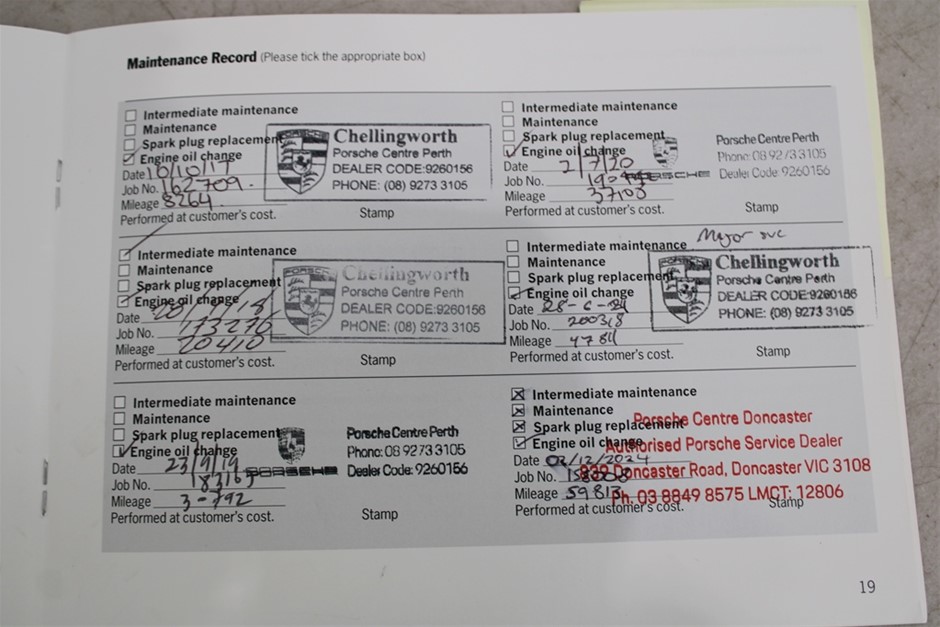 Maintenance Record (Please tick the appropriate box)
Intermediate maintenance
Maintenance
Spark plug replacement
Engine oil change
Date 10/10/17
Job No. 162709.
Mileage 8264.
Performed at customer's cost.
Stamp
Chellingworth
Porsche Centre Perth
DEALER CODE:9260156
PHONE: (08) 9273 3105
Intermediate maintenance
Maintenance
Spark plug replacement
Engine oil change
Date
Job No. 173276
Mileage 20410
Performed at customer's cost.
Stamp
PORSCHE
Chellingworth
Porsche Centre Perth
DEALER CODE:9260156
PHONE: (08) 9273 3105
Intermediate maintenance
Maintenance
Spark plug replacement
Engine oil change
Date 23/9/19
Job No.
Mileage
Performed at customer's cost.
Stamp
PORSCHE
Porsche Centre Perth
Phone: 08 9273 3105
Dealer Code: 9260156
Intermediate maintenance
Maintenance
Spark plug replacement
Engine oil change
Date 2/7/20
Job No.
Mileage 37108
Performed at customer's cost.
Stamp
PORSCHE
Porsche Centre Perth
Phone: 08 9273 3105
Dealer Code: 9260156
Major svc
Intermediate maintenance
Maintenance
Spark plug replacement
Engine oil change
Date 28-6-
Job No. 200318
Mileage
Performed at customer's cost.
Stamp
Chellingworth
Porsche Centre Perth
DEALER CODE:9260156
PHONE: (08) 9273 3105
Intermediate maintenance
Maintenance
Spark plug replacement
Engine oil change
Date 02/12/2024
Job No.
Mileage 59813
Performed at customer's cost.
Stamp
Porsche Centre Doncaster
Authorised Porsche Service Dealer
Doncaster Road, Doncaster VIC 3108
Ph. 03 8849 8575 LMCT: 12806
19